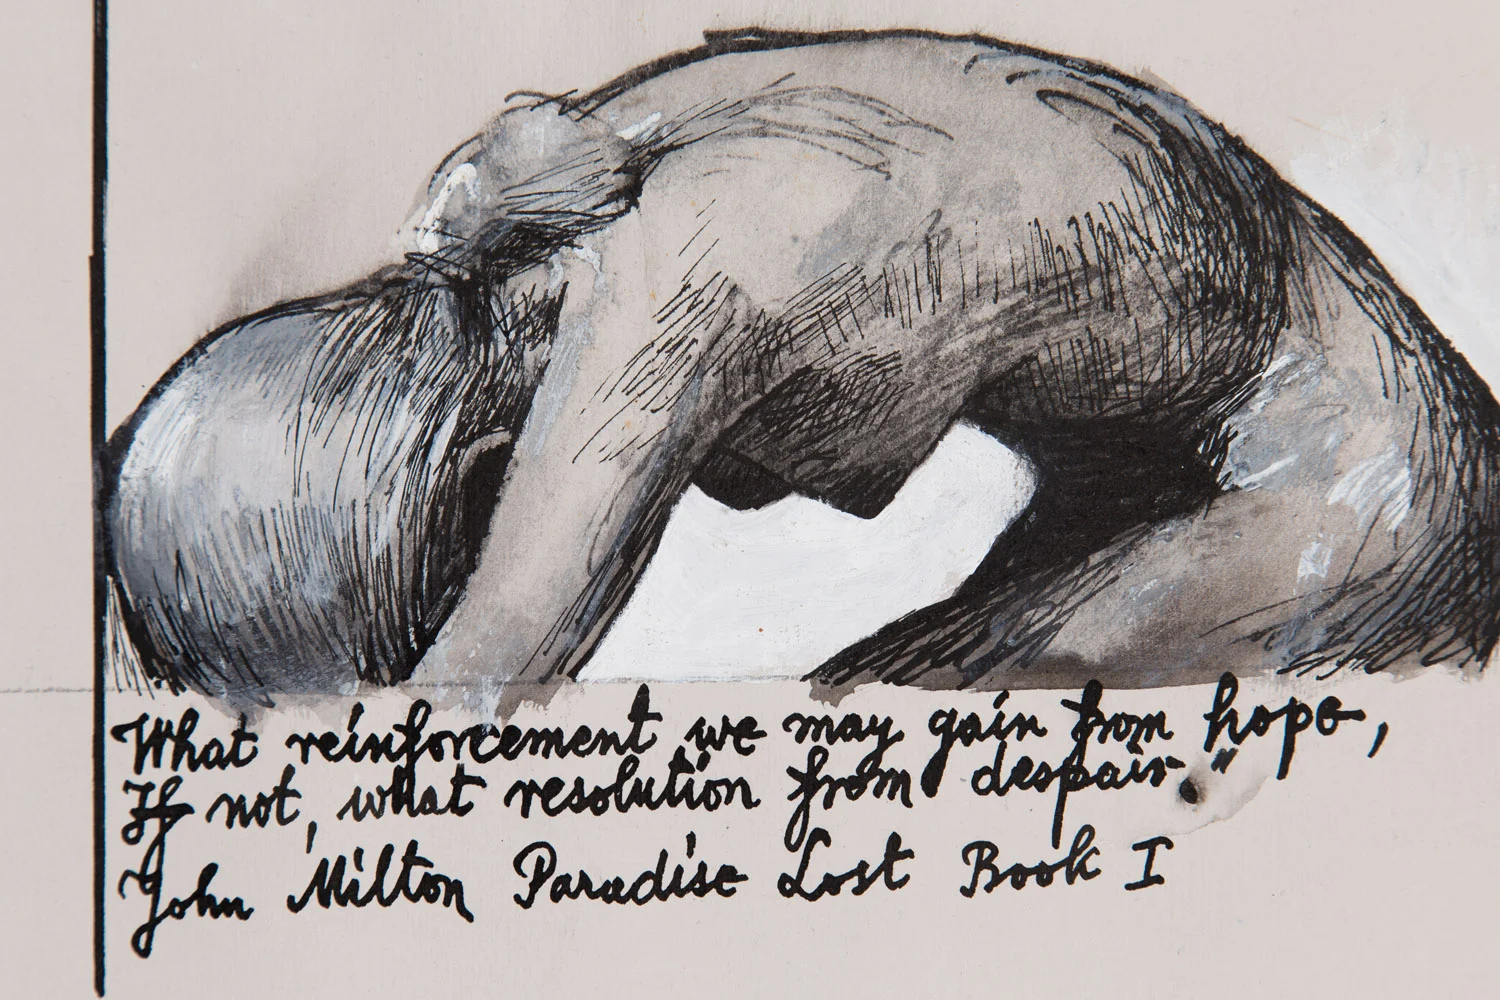 What reinforcement we may gain from hope,
If not, what resolution from despair."
John Milton Paradise Lost Book I